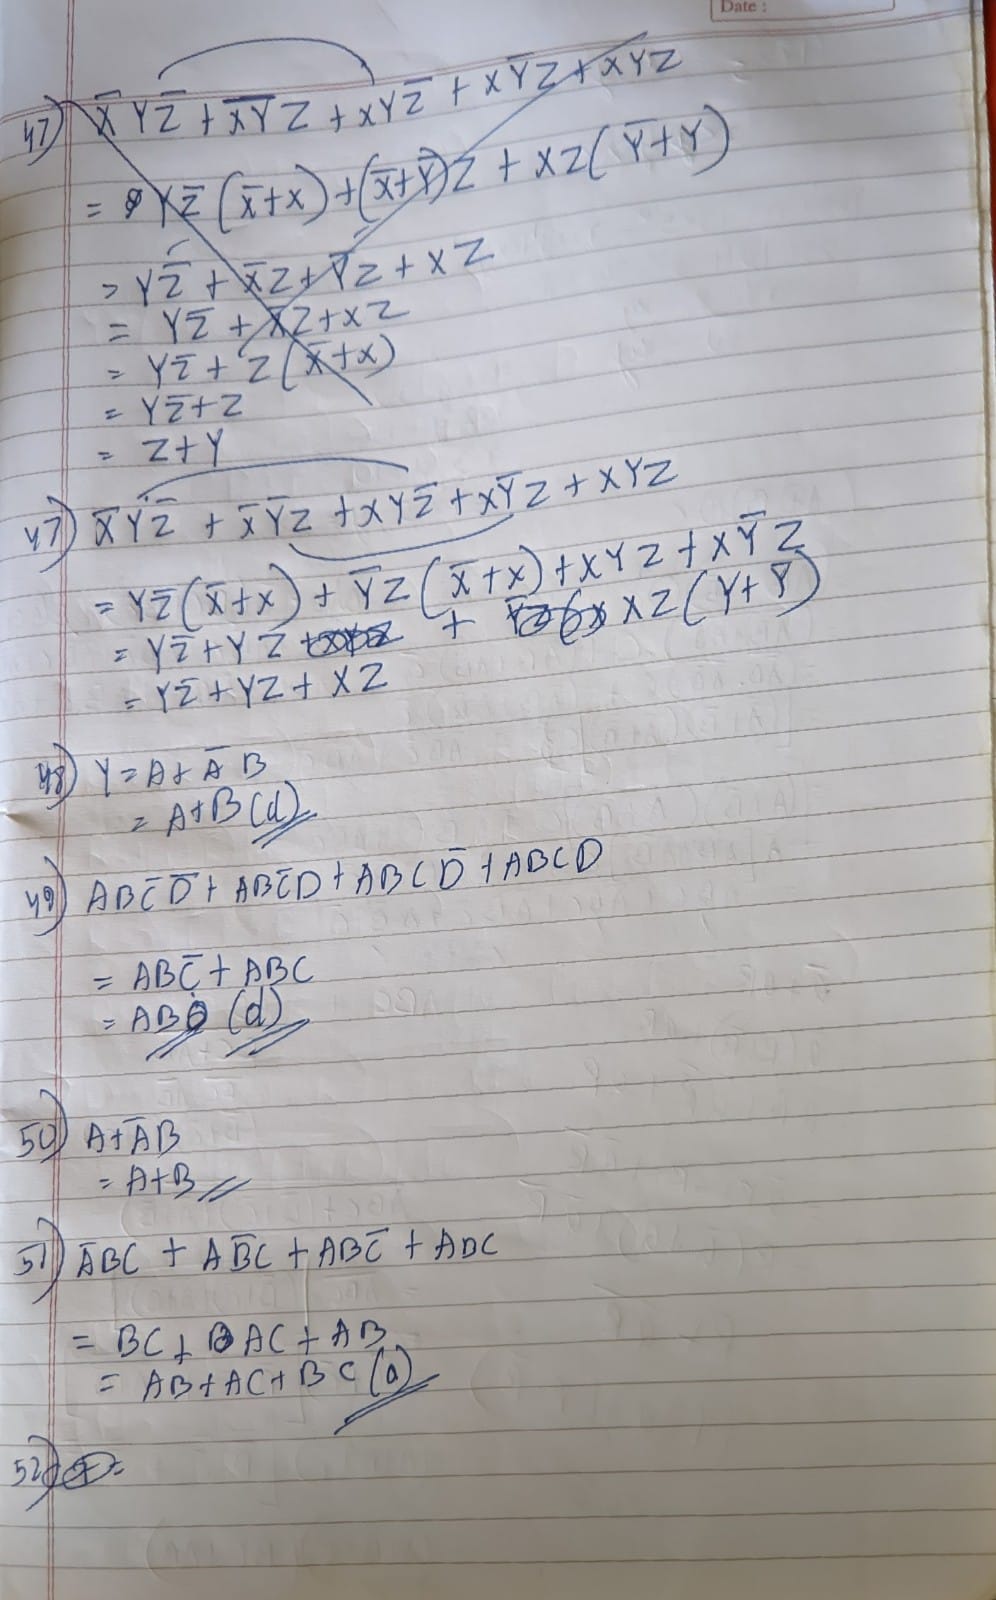 Date :
47) X̅YZ̅ + X̅Y̅Z + XYZ̅ + XY̅Z + XYZ
= YZ̅(X̅+X) + (X̅+Y̅)Z + XZ(Y̅+Y)
= YZ̅ + X̅Z + Y̅Z + XZ
= YZ̅ + X̅Z + XZ
= YZ̅ + Z(X̅+X)
= YZ̅ + Z
= Z+Y
47) X̅YZ̅ + X̅Y̅Z + XYZ̅ + XY̅Z + XYZ
= YZ̅(X̅+X) + Y̅Z(X̅+X) + XYZ + XY̅Z
= YZ̅ + YZ + XZ(Y+Y̅)
= YZ̅ + YZ + XZ
48) Y = A + A̅B
= A+B (d)
49) ABC̅D̅ + ABC̅D + ABCD̅ + ABCD
= ABC̅ + ABC
= AB (d)
50) A+A̅B
= A+B
51) A̅BC + AB̅C + ABC̅ + ABC
= BC + AC + AB
= AB+AC+BC (a)
52) =